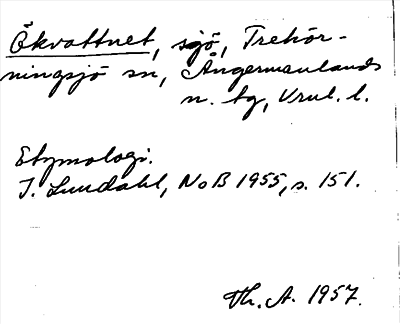 Ökvattnet, sjö, Trehör-
ningsjö sn, Ångermanlands
n. tg, Vnul. l.
Etymologi.
I. Lundahl, NoB 1955, s. 151.
Th. A. 1957.